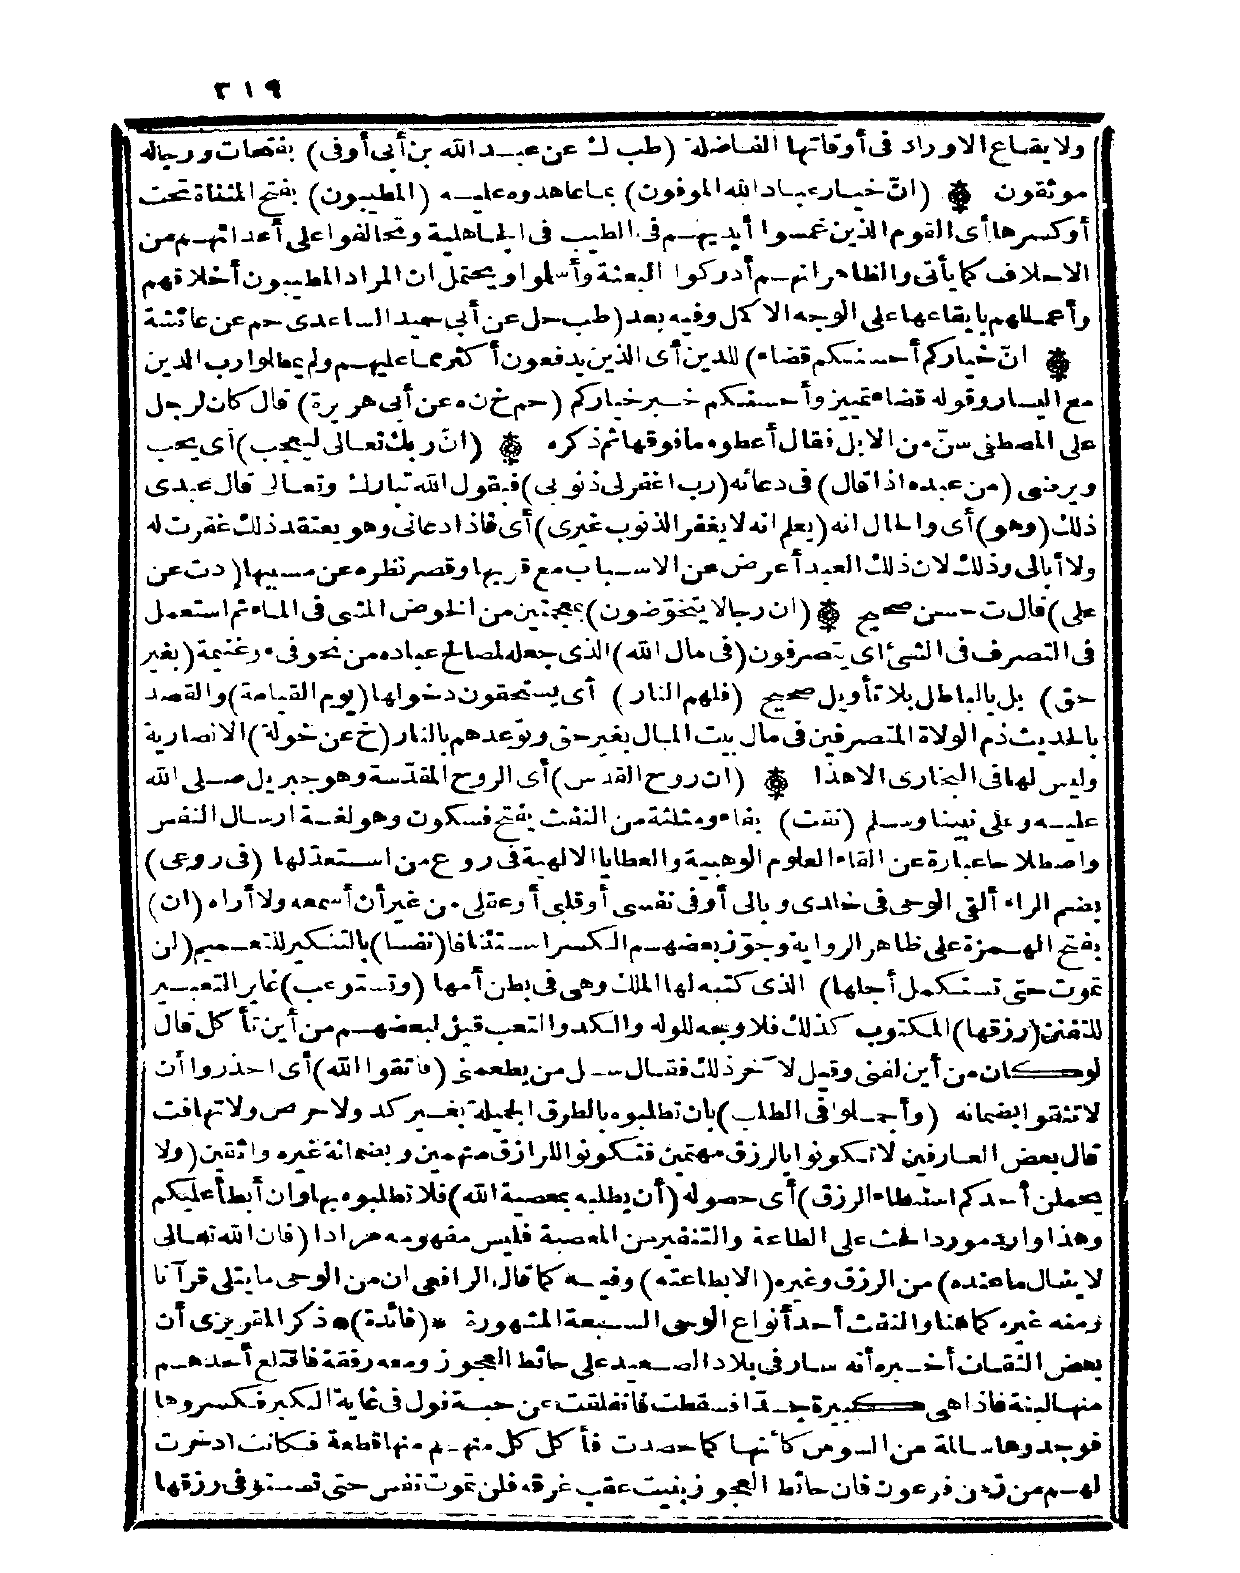 ٣١٩
ولا يقاع الاوراد فى أوقاتها الفاضلة (طب ك عن عبد الله بن أبى أوفى) بفتحات ورجاله
موثقون (انّ خيار عباد الله الموفون) بما عاهدوه عليه (المطيبون) بفتح المثناة تحت
أو كسرها أى القوم الذين غمسوا أيديهم فى الطيب فى الجاهلية وتحالفوا على أعدائهم من
الاحلاف كما يأتى والظاهر انهم أدركوا البعثة وأسلموا ويحتمل ان المراد المطيبون أخلاقهم
وأعمالهم بايقاعها على الوجه الاكمل وفيه بعد (طب حل عن أبى حميد الساعدى حم عن عائشة
انّ خياركم أحسنكم قضاء) للدين أى الذين يدفعون أكثر مما عليهم ولم يمطلوا رب الدين
مع اليسار وقوله قضاء تمييز وأحسنكم خبر خياركم (حم خ ن ه عن أبى هريرة) قال كان لرجل
على المصطفى سنّ من الابل فقال أعطوه ما فوقها ثم ذكره (انّ ربك تعالى ليعجب) أى يحب
ويرضى (من عبده اذا قال) فى دعائه (رب اغفر لى ذنوبى) فيقول الله تبارك وتعالى قال عبدى
ذلك (وهو) أى والحال انه (يعلم انه لا يغفر الذنوب غيرى) أى فاذا دعانى وهو يعتقد ذلك غفرت له
ولا أبالى وذلك لان ذلك العبد أعرض عن الاسباب مع قربها وقصر نظره عن مسببها (د ت عن
على) قال ت حسن صحيح (ان رجالا يتخوّضون) بمعجمتين من الخوض المشى فى الماء ثم استعمل
فى التصرف فى الشئ اى يتصرفون (فى مال الله) الذى جعله لمصالح عباده من نحو فىء وغنيمة (بغير
حق) بل بالباطل بلا تأويل صحيح (فلهم النار) أى يستحقون دخولها (يوم القيامة) والقصد
بالحديث ذم الولاة المتصرفين فى مال بيت المال بغير حق وتوعدهم بالنار (خ عن خولة) الانصارية
وليس لها فى البخارى الا هذا (ان روح القدس) أى الروح المقدّسة وهو جبريل صلى الله
عليه وعلى نبينا وسلم (نفث) بفاء ومثلثة من النفث بفتح فسكون وهو لغة ارسال النفس
واصطلاحا عبارة عن القاء العلوم الوهبية والعطايا الالهية فى روع من استعدّ لها (فى روعى)
بضم الراء ألقى الوحى فى خلدى وبالى أو فى نفسى أو قلبى أو عقلى من غير أن أسمعه ولا أراه (ان)
بفتح الهمزة على ظاهر الرواية وجوّز بعضهم الكسر استئنافا (نفسا) بالتنكير للتعميم (لن
تموت حتى تستكمل أجلها) الذى كتبه لها الملك وهى فى بطن أمها (وتستوعب) غاير التعبير
للتفنن (رزقها) المكتوب كذلك فلا وجه للوله والكد والتعب قيل لبعضهم من أين تأكل قال
لو كان من أين لفنى وقيل لآخر ذلك فقال سل من يطعمنى (فاتقوا الله) أى احذروا أن
لا تثقوا بضمانه (وأجملوا فى الطلب) بان تطلبوه بالطرق الجميلة بغير كد ولا حرص ولا تهافت
قال بعض العارفين لا تكونوا بالرزق مهتمين فتكونوا للرازق متهمين وبضمانة غيره واثقين (ولا
يحملن أحدكم استبطاء الرزق) أى حصوله (أن يطلبه بمعصية الله) فلا تطلبوه بها وان أبطأ عليكم
وهذا وارد مورد الحث على الطاعة والتنفير من المعصية فليس مفهومه مرادا (فان الله تعالى
لا ينال ما عنده) من الرزق وغيره (الا بطاعته) وفيه كما قال الرافعى ان من الوحى ما يتلى قرآنا
ومنه غيره كما هنا والنفث أحد أنواع الوحى السبعة المشهورة *(فائدة)* ذكر المقريزى أن
بعض الثقات أخبره أنه سار فى بلاد الصعيد على حائط العجوز ومعه رفقة فاقتلع أحدهم
منها لبنة فاذا هى كبيرة جدّا فسقطت فانفلقت عن حبة فول فى غاية الكبر فكسروها
فوجدوها سالمة من السوس كأنها كما حصدت فأكل كل منهم منها قطعة فكانت ادخرت
لهم من زمن فرعون فان حائط العجوز بنيت عقب غرقه فلن تموت نفس حتى تستوفى رزقها